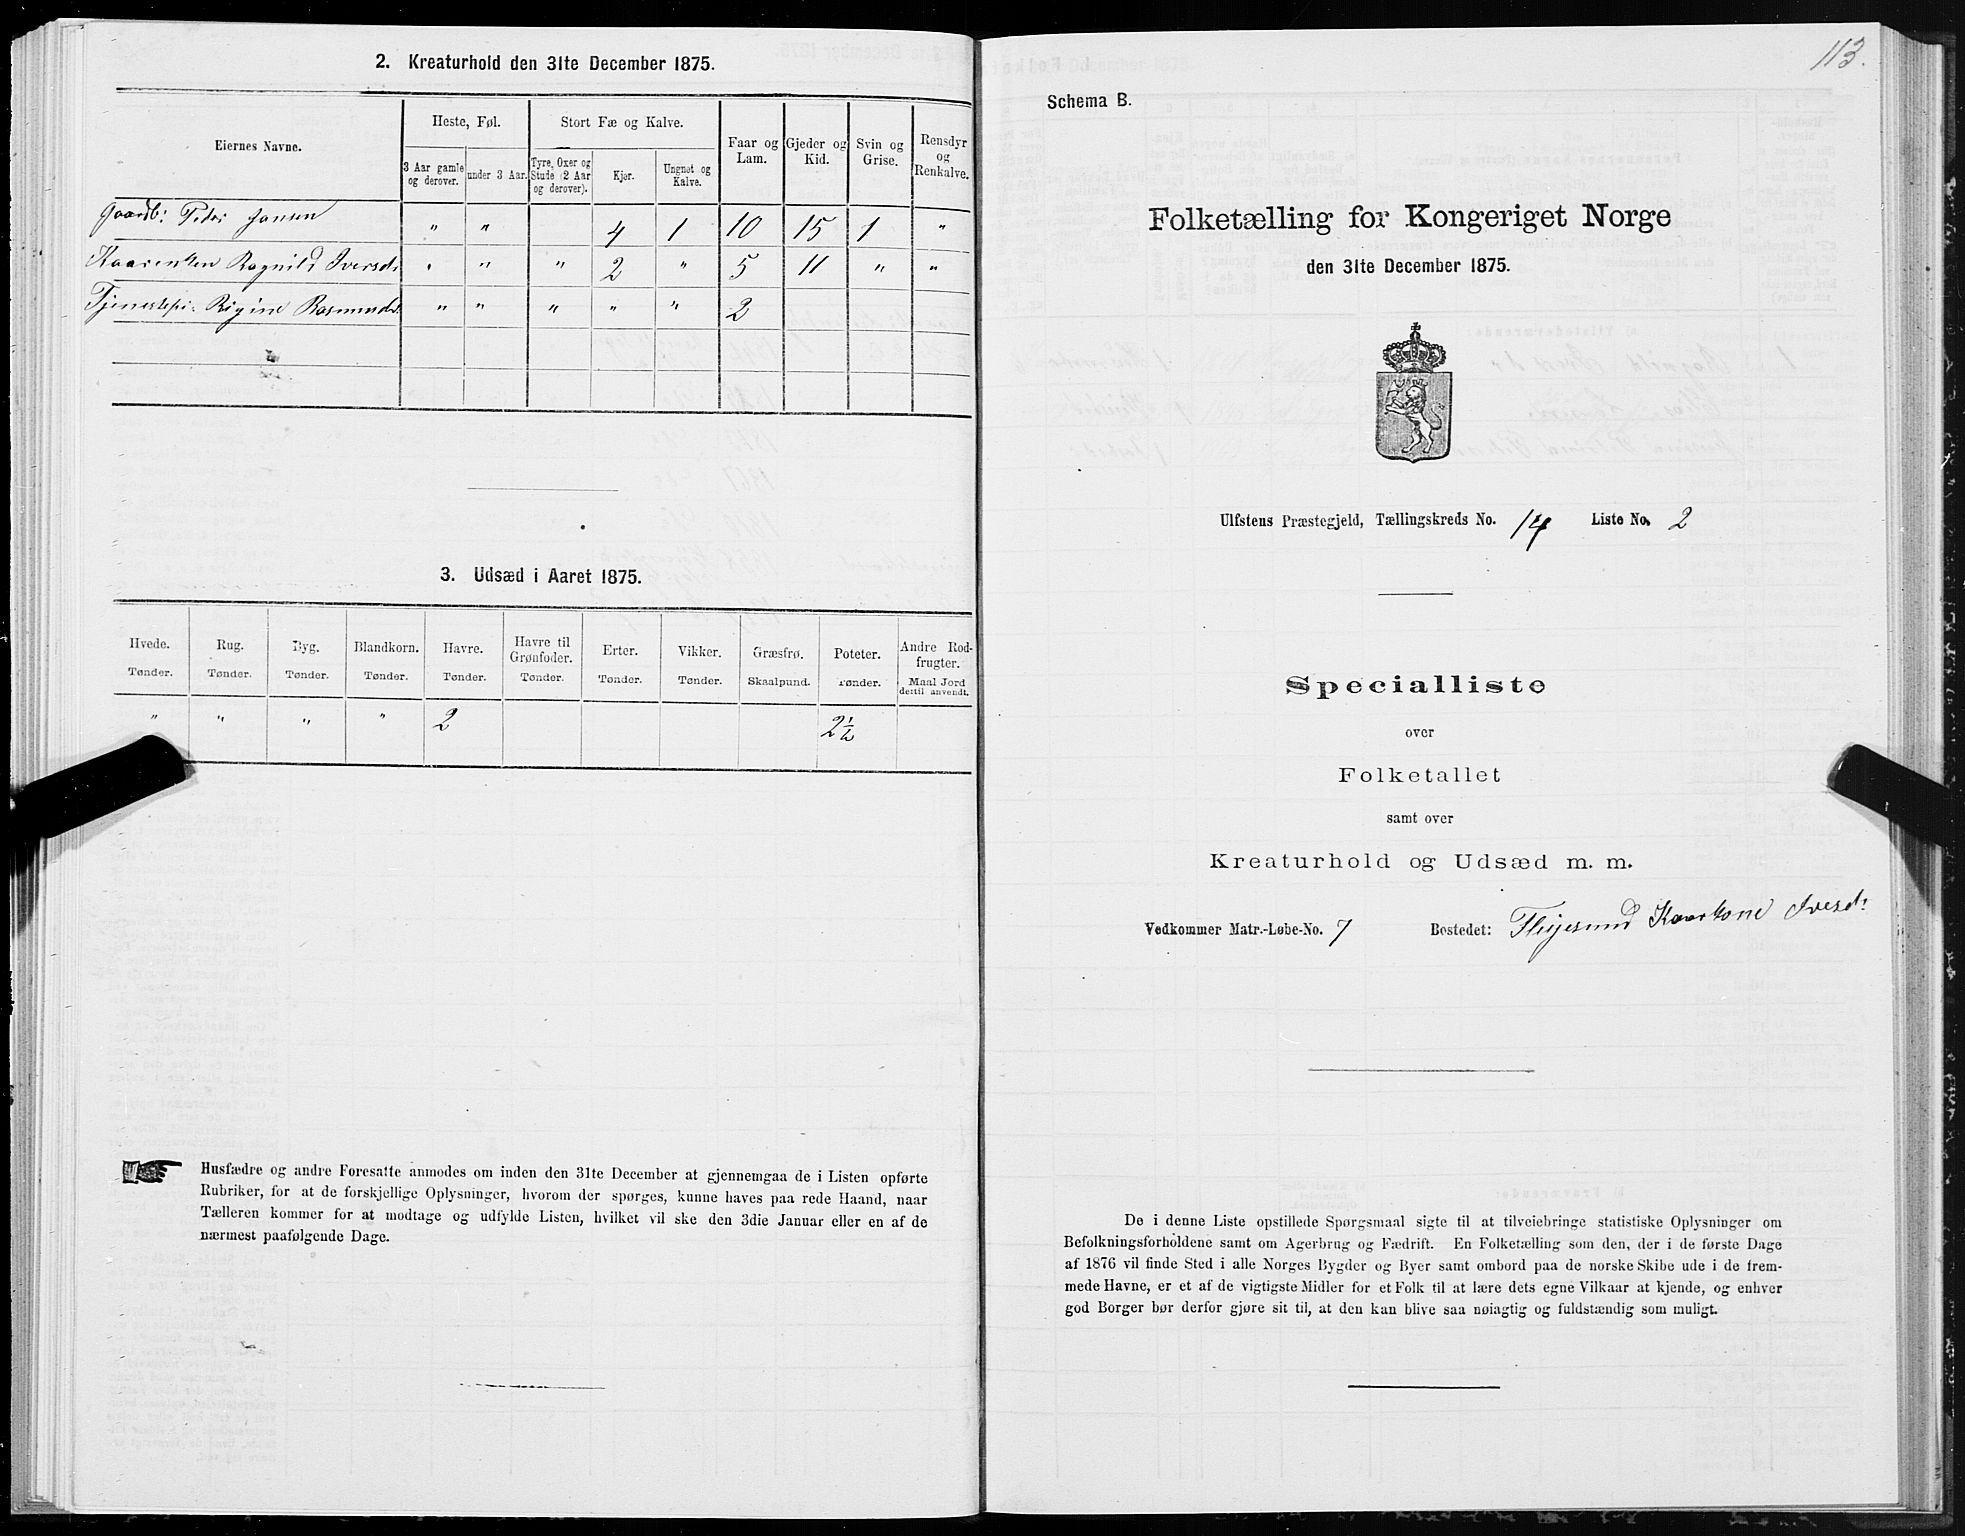 2. Kreaturhold den 31te December 1875.
Eiernes Navne. Heste, Føl. Stort Fæ og Kalve. Faar og Lam. Gjeder og Kid. Svin og Grise. Rensdyr og Renkalve.
3 Aar gamle og derover. under 3 Aar. Tyre, Oxer og Stude (2 Aar og derover). Kjør. Ungnøt og Kalve.
Gaardb: Peder Jansen " " 4 1 10 15 1 "
Kaarenken Ragnild Iversdr " " " 2 " 5 11 " "
Tjenestepi. Rigine Rasmusdr " " " " " 2
3. Udsæd i Aaret 1875.
Hvede. Rug. Byg. Blandkorn. Havre. Havre til Grønfoder. Erter. Vikker. Græsfrø. Poteter. Andre Rodfrugter.
Tønder. Tønder. Tønder. Tønder. Tønder. Tønder. Tønder. Tønder. Skaalpund. Tønder. Maal Jord dertil anvendt.
" " " " 2 2 1/2
Husfædre og andre Foresatte anmodes om inden den 31te December at gjennemgaa de i Listen opførte
Rubriker, for at de forskjellige Oplysninger, hvorom der spørges, kunne haves paa rede Haand, naar
Tælleren kommer for at modtage og udfylde Listen, hvilket vil ske den 3die Januar eller en af de
nærmest paafølgende Dage.
113.
Schema B.
Folketælling for Kongeriget Norge
den 31te December 1875.
Ulfstens Præstegjeld, Tællingskreds No. 14 Liste No. 2
Specialliste
over
Folketallet
samt over
Kreaturhold og Udsæd m. m.
Vedkommer Matr.-Løbe-No. 7 Bostedet: Kaarkone Iversdr
De i denne Liste opstillede Spørgsmaal sigte til at tilveiebringe statistiske Oplysninger om
Befolkningsforholdene samt om Agerbrug og Fædrift. En Folketælling som den, der i de første Dage
af 1876 vil finde Sted i alle Norges Bygder og Byer samt ombord paa de norske Skibe ude i de frem-
mede Havne, er et af de vigtigste Midler for et Folk til at lære dets egne Vilkaar at kjende, og enhver
god Borger bør derfor gjøre sit til, at den kan blive saa nøiagtig og fuldstændig som muligt.